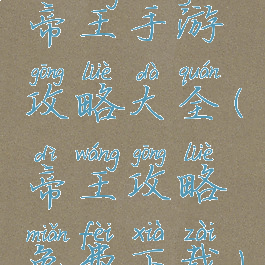 帝王手游
gōng lüè dà quán
攻略大全(
dì wáng gōng lüè
帝王攻略
miǎn fèi xià zài
免费下载)